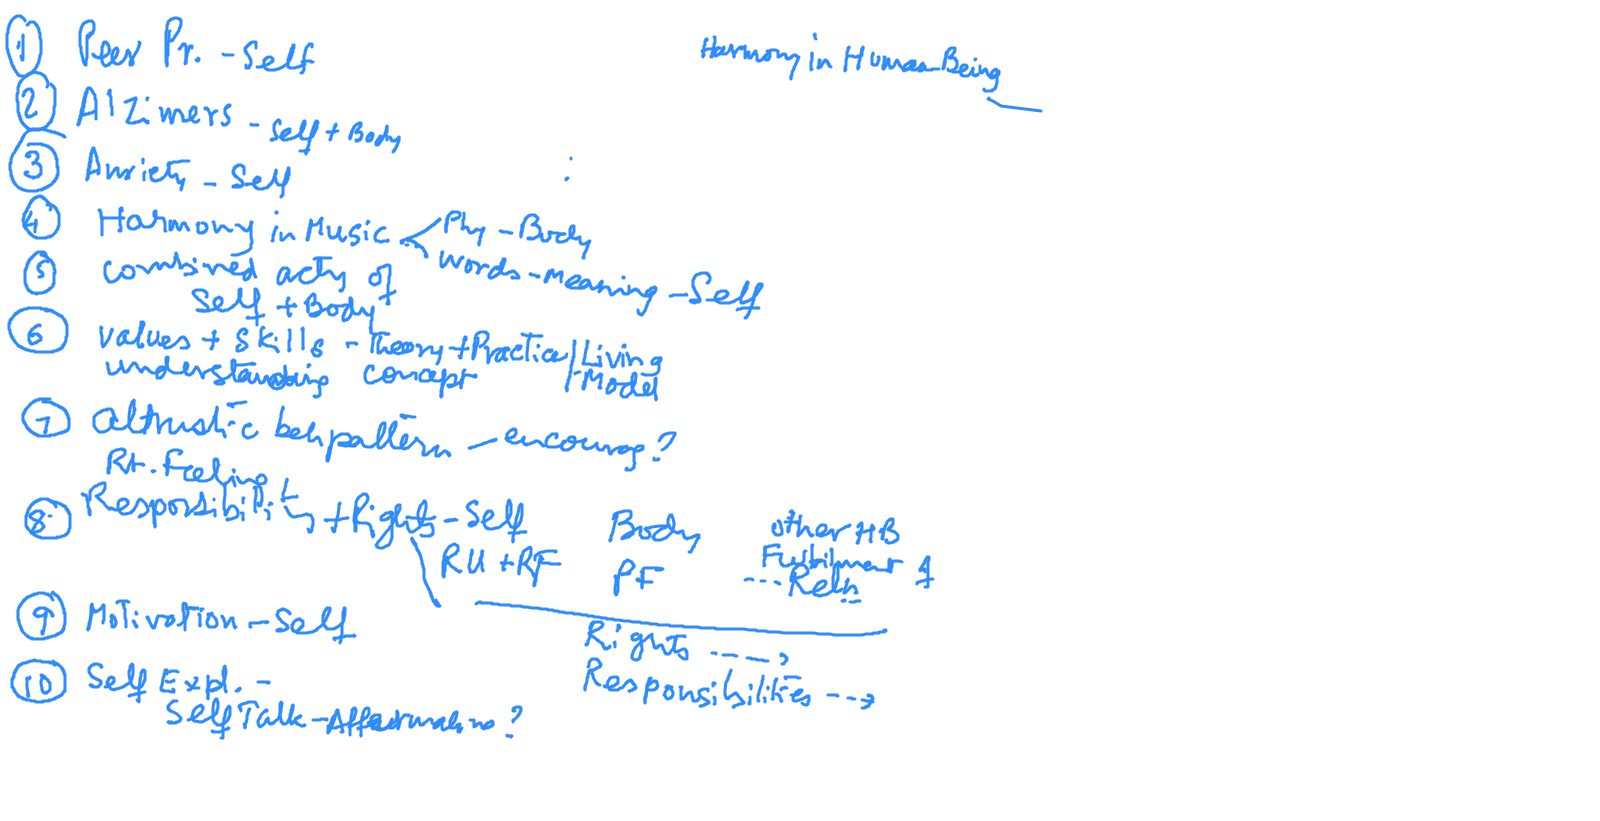 Harmony in Human Being
① Peer Pr. - Self
② Alzimers - Self + Body
③ Anxiety - Self
④ Harmony in Music < Phy - Body
words - Meaning - Self
⑤ combined acty of
Self + Body
⑥ values + Skills - Theory + Practice / Living
understanding concept / Model
⑦ altruistic beh pattern - encourage?
Rt. Feeling
⑧ Responsibility + Rights - Self Body other HB
RU + RF PF Fulfilment of
--- Reln
Rights --->
Responsibilities --->
⑨ Motivation - Self
⑩ Self Expl. -
Self Talk - ?